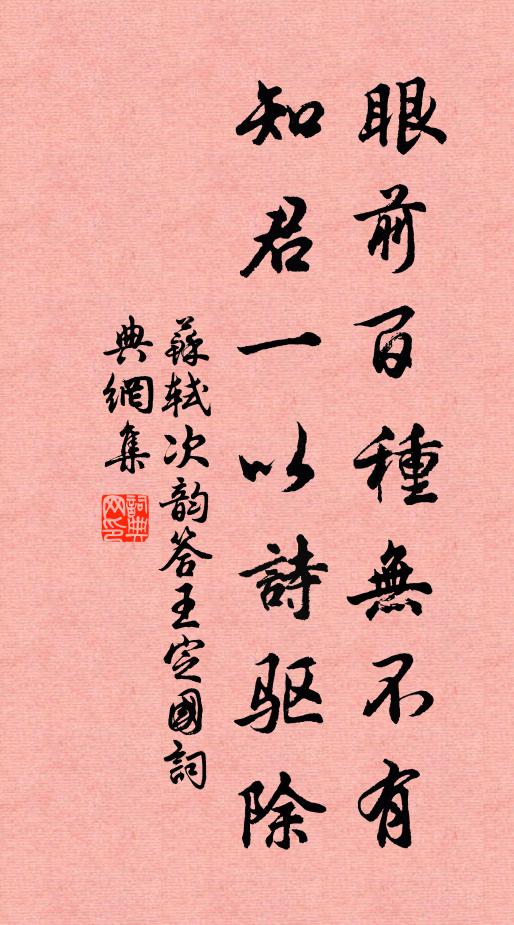 眼前百種無不有
知君一以詩驱除
蘇軾次韵答王定國詞
典網集
詞典
网印